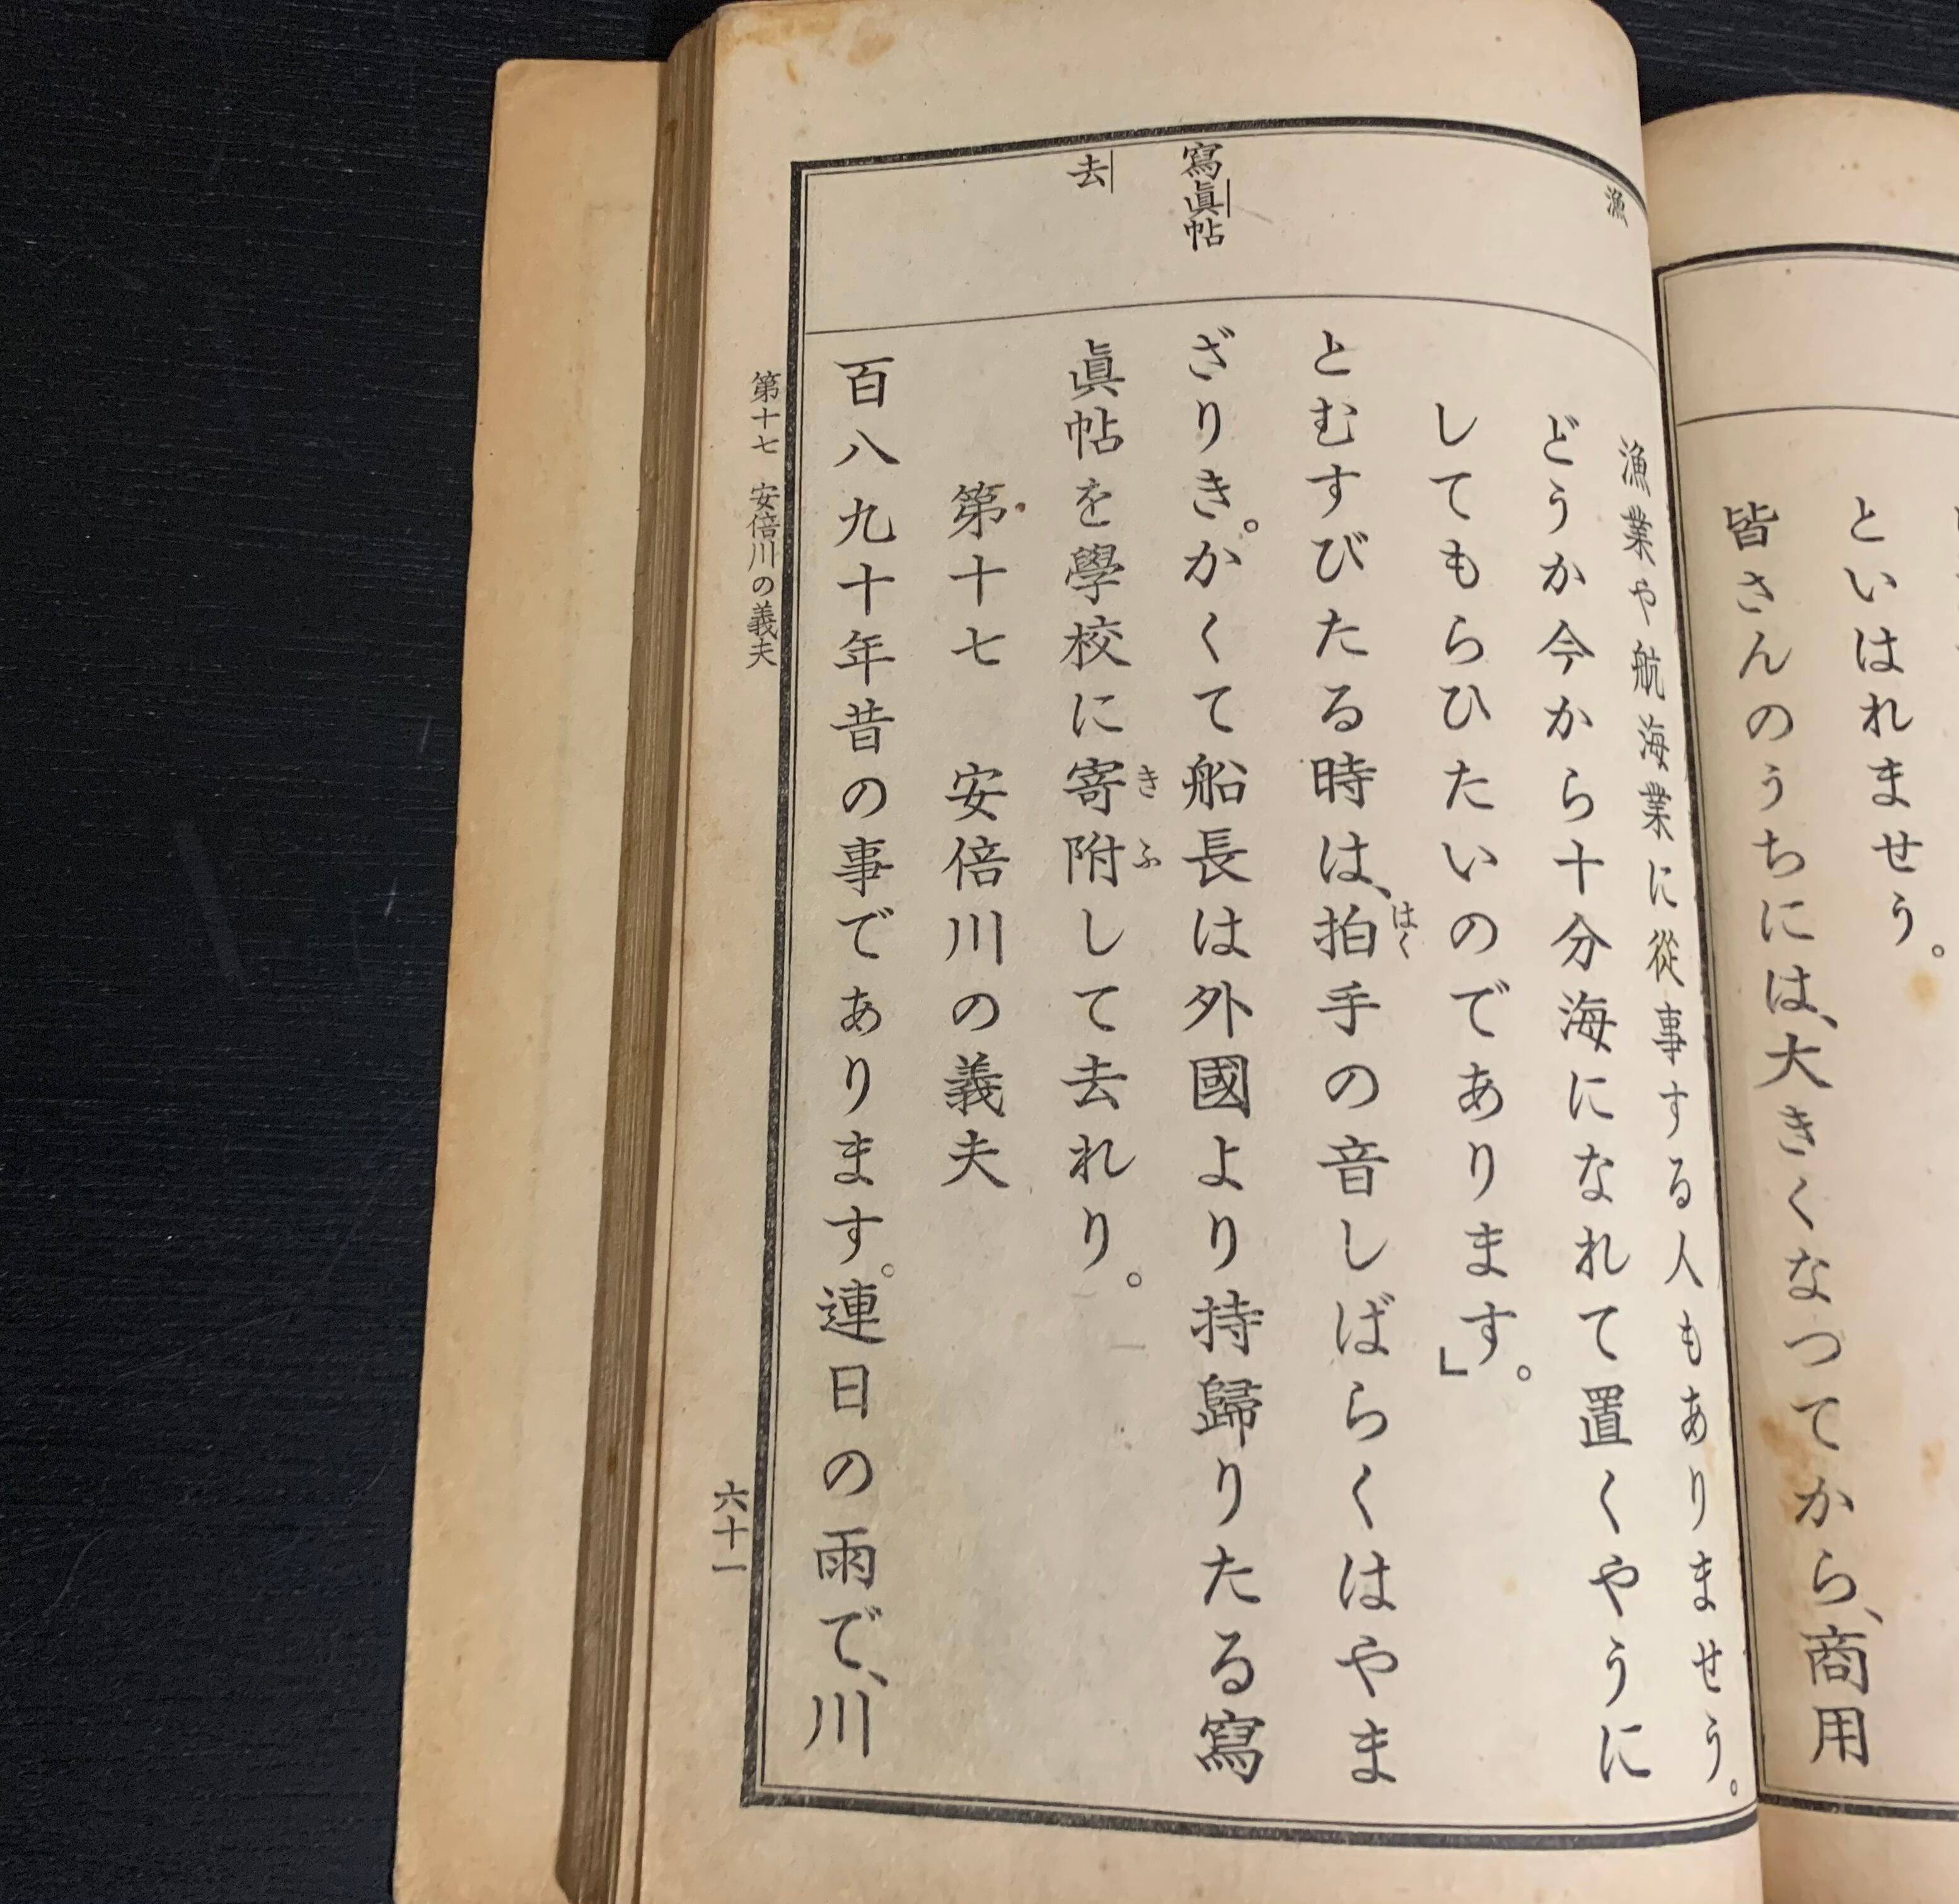 といはれませう。
皆さんのうちには、大きくなつてから、商用
漁
寫眞帖
去
漁業や航海業に從事する人もありませう。
どうか今から十分海になれて置くやうに
してもらひたいのであります。」
とむすびたる時は、拍手の音しばらくはやま
はく
ざりき。かくて船長は外國より持歸りたる寫
眞帖を學校に寄附して去れり。
きふ
第十七 安倍川の義夫
百八九十年昔の事であります。連日の雨で、川
第十七 安倍川の義夫
六十一